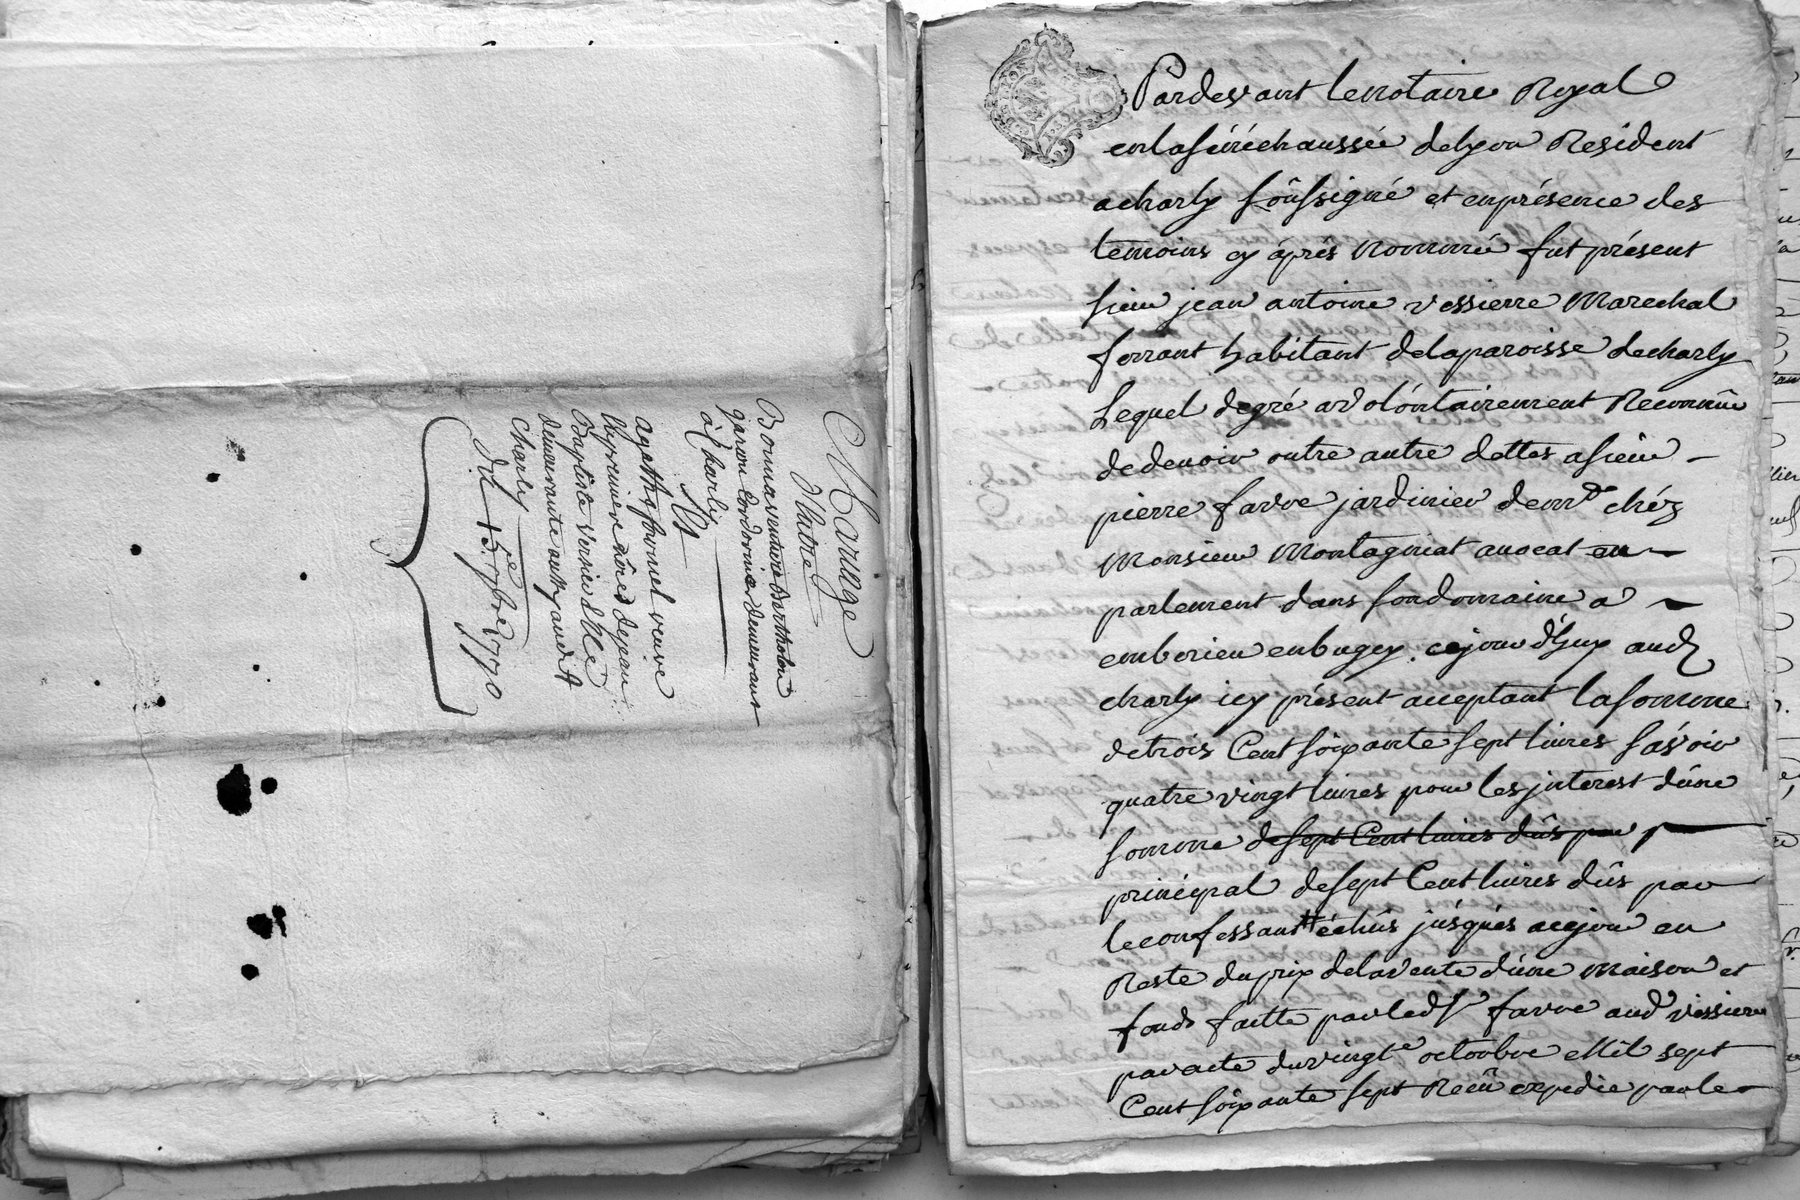 Mariage
D'Entre
Bonnaventure Bertholon
garçon Cordonnier demeurant
à Charly
Et
agathe fournel veuve
en premiere nôces de jean
Baptiste Versier d'elle
demeurante audit
Charly
Du 15e 9bre 1770
Pardevant le notaire Royal
en la sénéchaussée de lyon Résident
a charly soussigné et en présence des
temoins cy après nommé fut présent
sieur jean antoine vessierre Marechal
ferrant habitant de la paroisse de charly
Lequel de gré a volôntairement Reconnû
de devoir outre autre dettes a sieur
pierre favre jardinier demt chéz
Monsieur Montagniat avocat en
parlement dans son domaine a
emberieu en bugey. ce jour d'huy aud
charly icy présent acceptant la somme
de trois Cent soixante sept livres savoir
quatre vingt livres pour les jnterest d'ûne
somme de sept Cent livres dûs par p
principal de sept Cent livres dûs par
le confessant échûs jusques a ce jour en
Reste du prix de la vente d'ûne Maison et
fonds faitte par led sr favre aud vissierre
par acte du vingt octoubre Mil sept
Cent soixante sept Reçû expedie par le